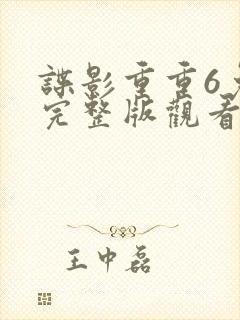 諜影重重6
完整版觀看
王中磊